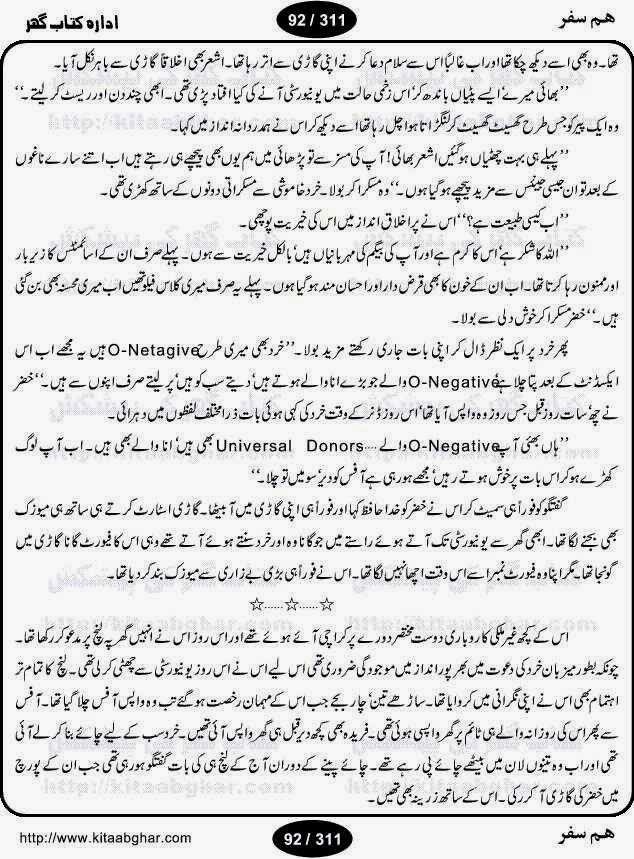 ھم سفر
92 / 311
ادارہ کتاب گھر
تھا۔ وہ بھی اسے دیکھ چکا تھا اور اب غالباً اس سے سلام دعا کرنے اپنی گاڑی سے اتر رہا تھا۔ اشعر بھی اخلاقاً گاڑی سے باہر نکل آیا۔
’’بھائی میرے‘ ایسے پٹیاں باندھ کر‘ اس زخمی حالت میں یونیورسٹی آنے کی کیا افتاد پڑی تھی۔ ابھی چند دن اور ریسٹ کر لیتے۔‘‘
وہ ایک پیر کو جس طرح گھسیٹ گھسیٹ کر لنگڑاتا ہوا چل رہا تھا اسے دیکھ کر اس نے ہمدردانہ انداز میں کہا۔
’’پہلے ہی بہت چھٹیاں ہو گئیں اشعر بھائی! آپ کی مسز سے تو پڑھائی میں ہم یوں بھی پیچھے ہی رہتے ہیں اب اتنے سارے ناغوں
کے بعد تو ان جیسی جینئس سے مزید پیچھے ہو گیا ہوں۔‘‘ وہ مسکرا کر بولا۔ خرد خاموشی سے مسکراتی دونوں کے ساتھ کھڑی تھی۔
’’اب کیسی طبیعت ہے؟‘‘ اس نے پر اخلاق انداز میں اس کی خیریت پوچھی۔
’’اللہ کا شکر ہے‘ اس کا کرم ہے اور آپ کی بیگم کی مہربانیاں ہیں‘ بالکل خیریت سے ہوں۔ پہلے صرف ان کے اسائنمنٹس کا زیر بار
اور ممنون رہا کرتا تھا۔ اب ان کے خون کا بھی قرض دار اور احسان مند ہو گیا ہوں۔ پہلے یہ صرف میری کلاس فیلو تھیں اب میری محسنہ بھی بن گئی
ہیں۔‘‘ خضر مسکرا کر خوش دلی سے بولا۔
پھر خرد پر ایک نظر ڈال کر اپنی بات جاری رکھتے مزید بولا۔ ’’خرد بھی میری طرح O-Netagive ہیں یہ مجھے اب اس
ایکسیڈنٹ کے بعد پتا چلا ہے‘ O-Negative والے جو بڑے انا والے ہوتے ہیں‘ دیتے سب کو ہیں‘ پر لیتے صرف اپنوں سے ہیں۔‘‘ خضر
نے چھ‘ سات روز قبل جس روز وہ واپس آیا تھا‘ اس روز ڈنر کے وقت خرد کی کہی ہوئی بات ذرا مختلف لفظوں میں دہرائی۔
’’ہاں بھئی آپ O-Negative والے .... Universal Donors بھی ہیں‘ انا والے بھی ہیں۔ اب آپ لوگ
کھڑے ہو کر اس بات پر خوش ہوتے رہیں‘ مجھے ہو رہی ہے آفس کو دیر‘ سو میں تو چلا۔‘‘
گفتگو کو فوراً ہی سمیٹ کر اس نے خضر کو خدا حافظ کہا اور فوراً ہی اپنی گاڑی میں آ بیٹھا۔ گاڑی اسٹارٹ کرتے ہی ساتھ ہی میوزک
بھی بجنے لگا تھا۔ ابھی گھر سے یونیورسٹی تک آتے ہوئے راستے میں جو گانا وہ اور خرد سنتے ہوئے آتے تھے وہی اس کا فیورٹ گانا گاڑی میں
گونجا تھا۔ مگر اپنا وہ فیورٹ نمبر اسے اس وقت اچھا نہیں لگا تھا۔ اس نے فوراً ہی بڑی بے زاری سے میوزک بند کر دیا تھا۔
☆......☆......☆
اس کے کچھ غیر ملکی کاروباری دوست مختصر دورے پر کراچی آئے ہوئے تھے اور اس روز اس نے انہیں گھر پہ لنچ پر مدعو کر رکھا تھا۔
چونکہ بطور میزبان خرد کی دعوت میں بھرپور انداز میں موجودگی ضروری تھی اس لیے اس نے اس روز یونیورسٹی سے چھٹی کر لی تھی۔ لنچ کا تمام تر
اہتمام بھی اس نے اپنی نگرانی میں کروایا تھا۔ ساڑھے تین‘ چار بجے جب اس کے مہمان رخصت ہو گئے تب وہ واپس آفس چلا گیا تھا۔ آفس
سے پھر اس کی روزانہ والے ہی ٹائم پر گھر واپسی ہوئی تھی۔ فریدہ بھی کچھ دیر قبل ہی گھر واپس آئی تھیں۔ خرد سب کے لیے چائے بنا کر لے آئی
تھی اور اب وہ تینوں لان میں بیٹھے چائے پی رہے تھے۔ چائے پینے کے دوران آج کے لنچ ہی کی بات گفتگو ہو رہی تھی جب ان کے پورچ
میں خضر کی گاڑی آ کر رکی۔ اس کے ساتھ زرینہ بھی تھیں۔
http://www.kitaabghar.com
92 / 311
ھم سفر